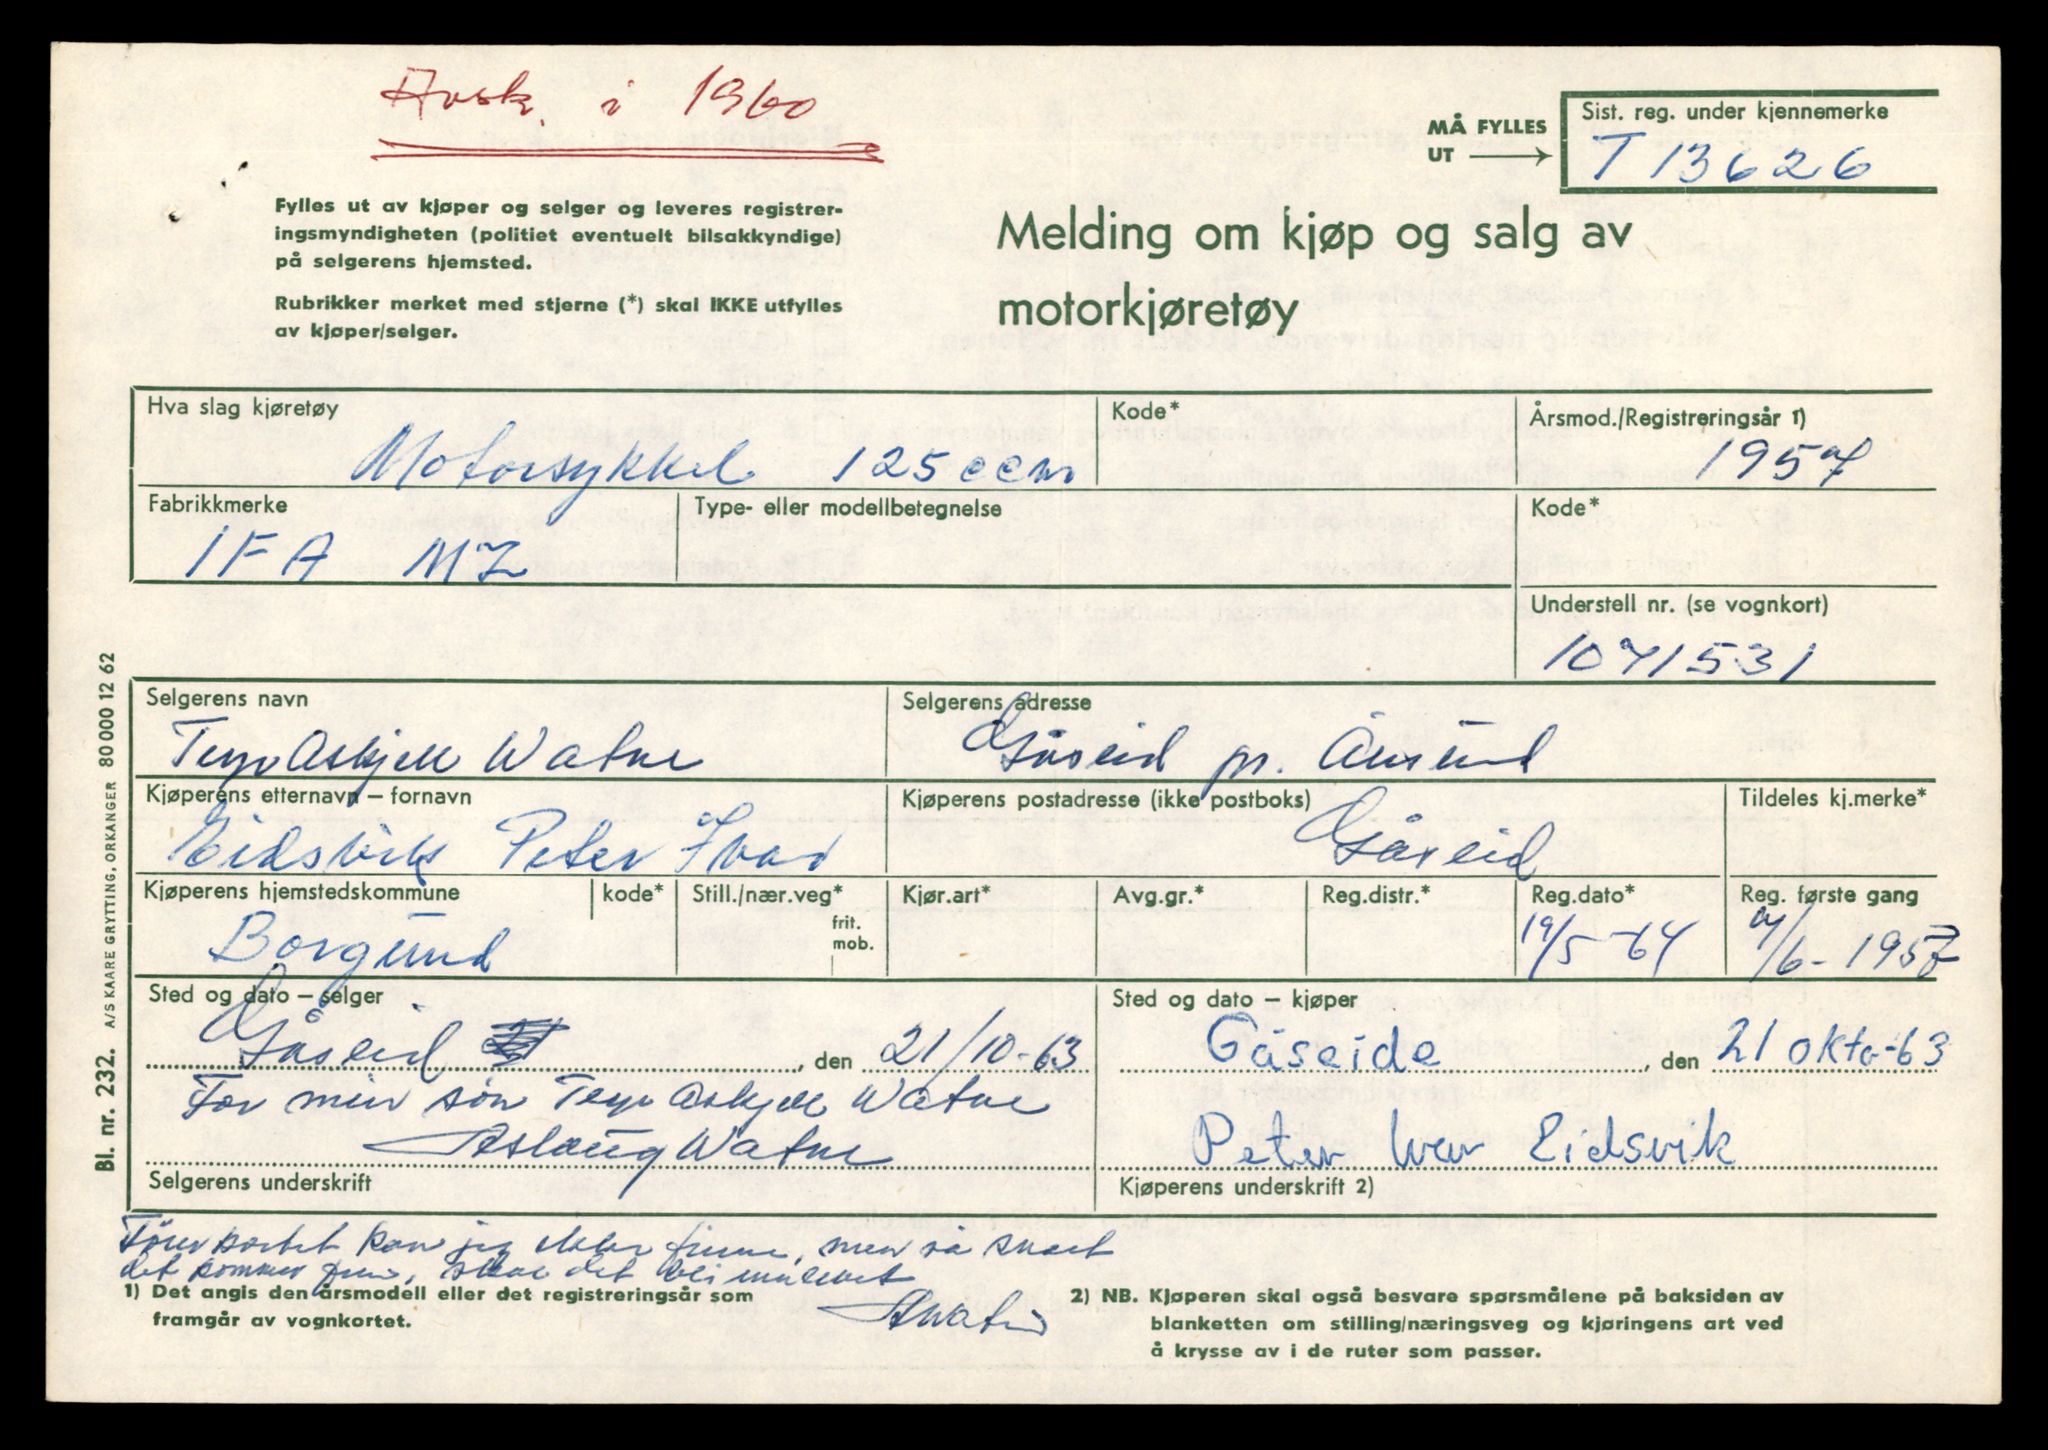 Avsk. i 1960
MÅ FYLLES
UT
Sist. reg. under kjennemerke
T 13626
Fylles ut av kjøper og selger og leveres registrer-
ingsmyndigheten (politiet eventuelt bilsakkyndige)
på selgerens hjemsted.
Rubrikker merket med stjerne (*) skal IKKE utfylles
av kjøper/selger.
Melding om kjøp og salg av
motorkjøretøy
Hva slag kjøretøy
Motorsykkel 125 ccm
Kode*
Årsmod./Registreringsår 1)
1957
Fabrikkmerke
IFA MZ
Type- eller modellbetegnelse
Kode*
Understell nr. (se vognkort)
1071531
Selgerens navn
Askjell Watne
Selgerens adresse
Gåseid pr. Ålesund
Kjøperens etternavn – fornavn
Eidsvik Peter Ivar
Kjøperens postadresse (ikke postboks)
Gåseid
Tildeles kj.merke*
Kjøperens hjemstedskommune
Borgund
kode*
Still./nær.veg*
frit.
mob.
Kjør.art*
Avg.gr.*
Reg.distr.*
Reg.dato*
19/5-64
Reg. første gang
/6-1957
Sted og dato – selger
Gåseid , den 21/10-63
For min søn Askjell Watne
Aslaug Watne
Selgerens underskrift
Sted og dato – kjøper
Gåseide , den 21 okto-63
Peter Ivar Eidsvik
Kjøperens underskrift 2)
Førerkortet kan jeg ikke finne, men så snart
det kommer frem, skal det bli innlevert
AWatne
1) Det angis den årsmodell eller det registreringsår som
framgår av vognkortet.
2) NB. Kjøperen skal også besvare spørsmålene på baksiden av
blanketten om stilling/næringsveg og kjøringens art ved
å krysse av i de ruter som passer.
Bl. nr. 232. A/S KAARE GRYTTING, ORKANGER 80 000 12 62